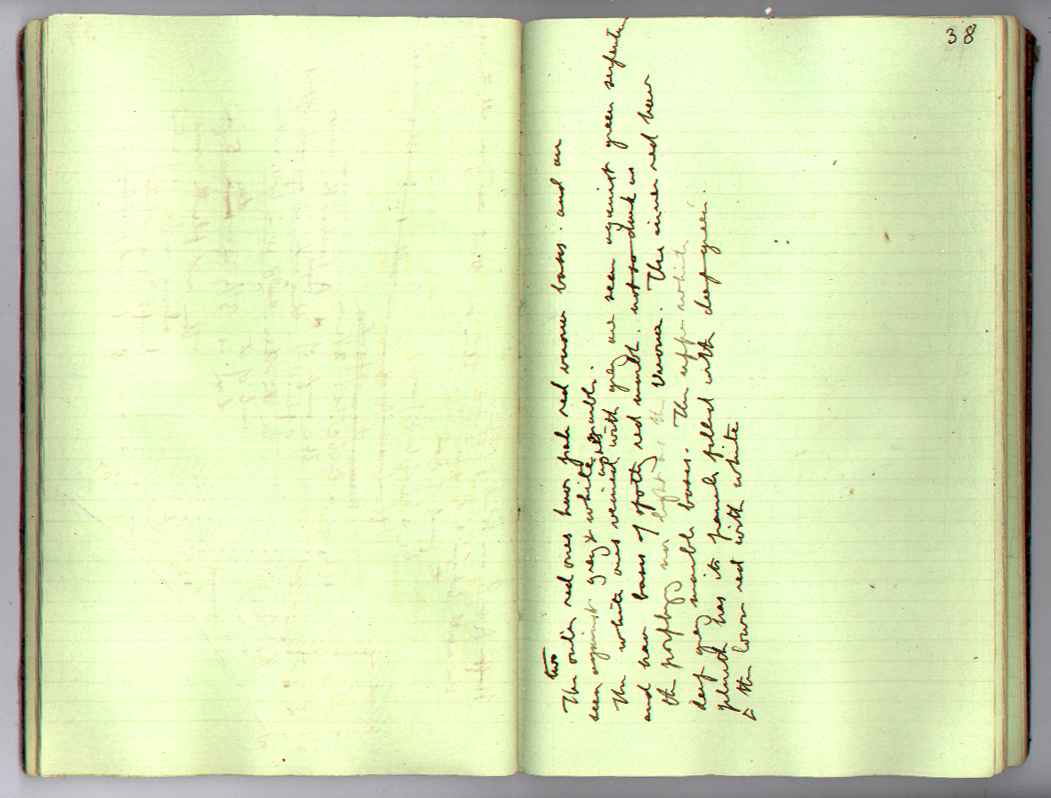 38
The two outer red ones have pale red verona bases. and are
seen against grey & white marble.
The white ones veined up with grey are seen against green serpentine
and have bases of spotty red marble. not so dark as
the porphyry nor light as the Verona. The inner red have
deep grey marble bases. The upper white
plinth has its panels filled with deep green.
& the lower red with white